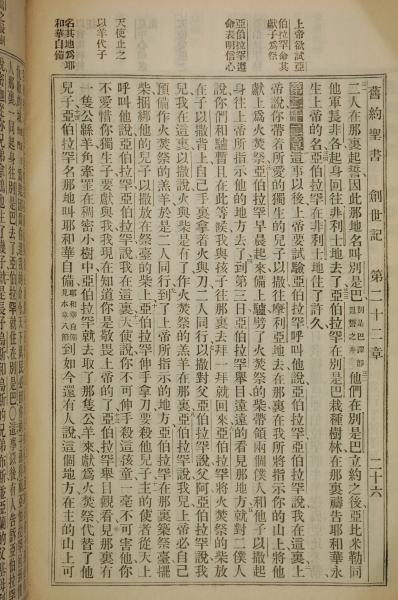 舊約聖書 創世記 第二十二章 二十六
上帝欲試亞
伯拉罕命其
獻子爲祭
亞伯拉罕遵
命表明信心
天使止之
以羊代子
名其地爲耶
和華自備
二人在那裏起誓因此那地名叫別是巴別是巴譯卽盟誓之井他們在別是巴立約之後亞比米勒同
他軍長非各起身回往非利士地去了亞伯拉罕在別是巴栽種樹林在那裏禱告耶和華永
生上帝的名亞伯拉罕在非利士地住了許久
第二十二章這事以後上帝要試驗亞伯拉罕呼叫他說亞伯拉罕亞伯拉罕說我在這裏上
帝說你帶着所愛的獨生的兒子以撒往摩利亞地去在那裏在我所將指示你的山上將他
獻上爲火焚祭亞伯拉罕早晨起來備上驢劈了火焚祭的柴帶領兩個僕人和他子以撒起
身往上帝所指示他的地方去了到第三日亞伯拉罕舉目遠遠的看見那地方就對二僕人
說你們和驢暫且在此等候我與孩子往那裏去拜一拜就回來亞伯拉罕將火焚祭的柴放
在子以撒背上自己手裏拿着火與刀二人同行以撒對父亞伯拉罕說父阿亞伯拉罕說我
兒我在這裏以撒說火與柴是有了作火焚祭的羔羊在那裏亞伯拉罕說我兒上帝必自己
預備作火焚祭的羔羊於是二人同行到了上帝所指示的地方亞伯拉罕在那裏築祭臺擺
柴捆綁他的兒子以撒放在祭臺的柴上亞伯拉罕伸手拿刀要殺他兒子主的使者從天上
呼叫他說亞伯拉罕亞伯拉罕說我在這裏天使說你不可伸手殺這孩童一毫不可害他你
不愛惜你獨生子要獻與我我現在知道你是敬畏上帝的了亞伯拉罕舉目觀看見那裏有
一隻公緜羊角牽罣在稠密小樹中亞伯拉罕就去取了那隻公羊來獻爲火焚祭代替了他
兒子亞伯拉罕名那地叫耶和華自備耶和華自備見本章八節到如今還有人說這個地方在主的山上可